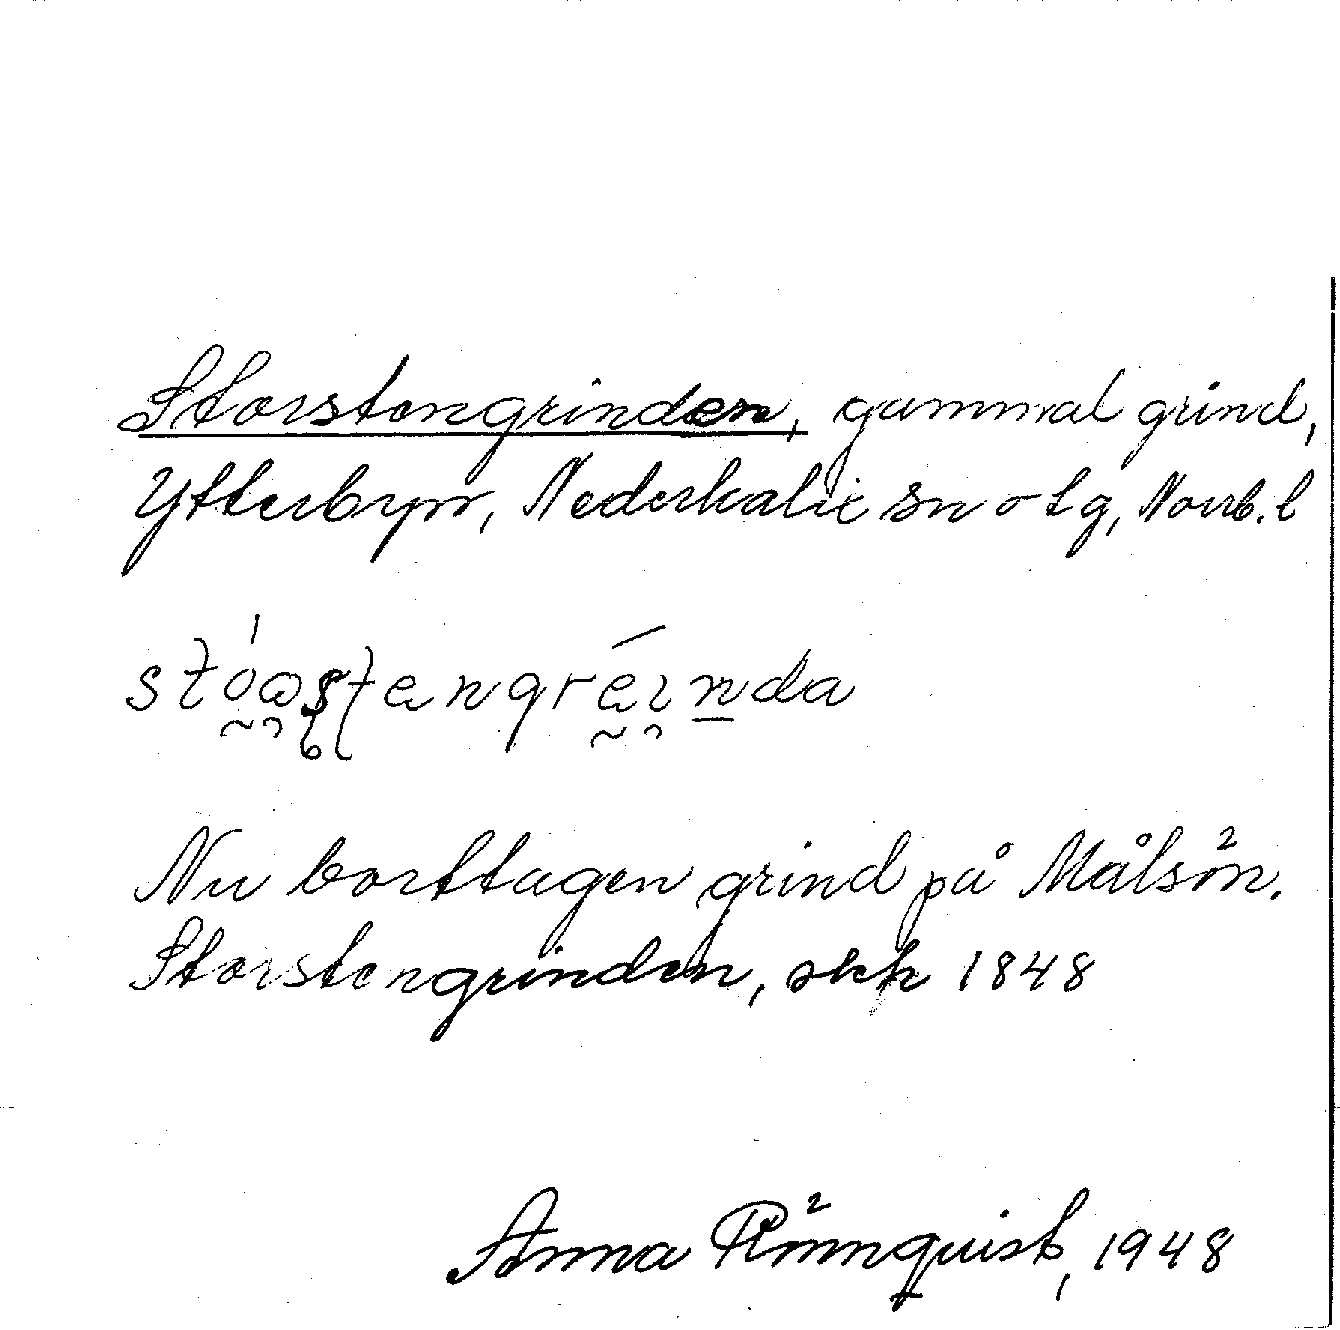 Storstengrinden, gammal grind,
Ytterbyn, Nederkalix sn o tg, Norrb. l
Nu borttagen grind på Målsön.
Storstengrinden, skk 1848
Anna Rönnquist, 1948